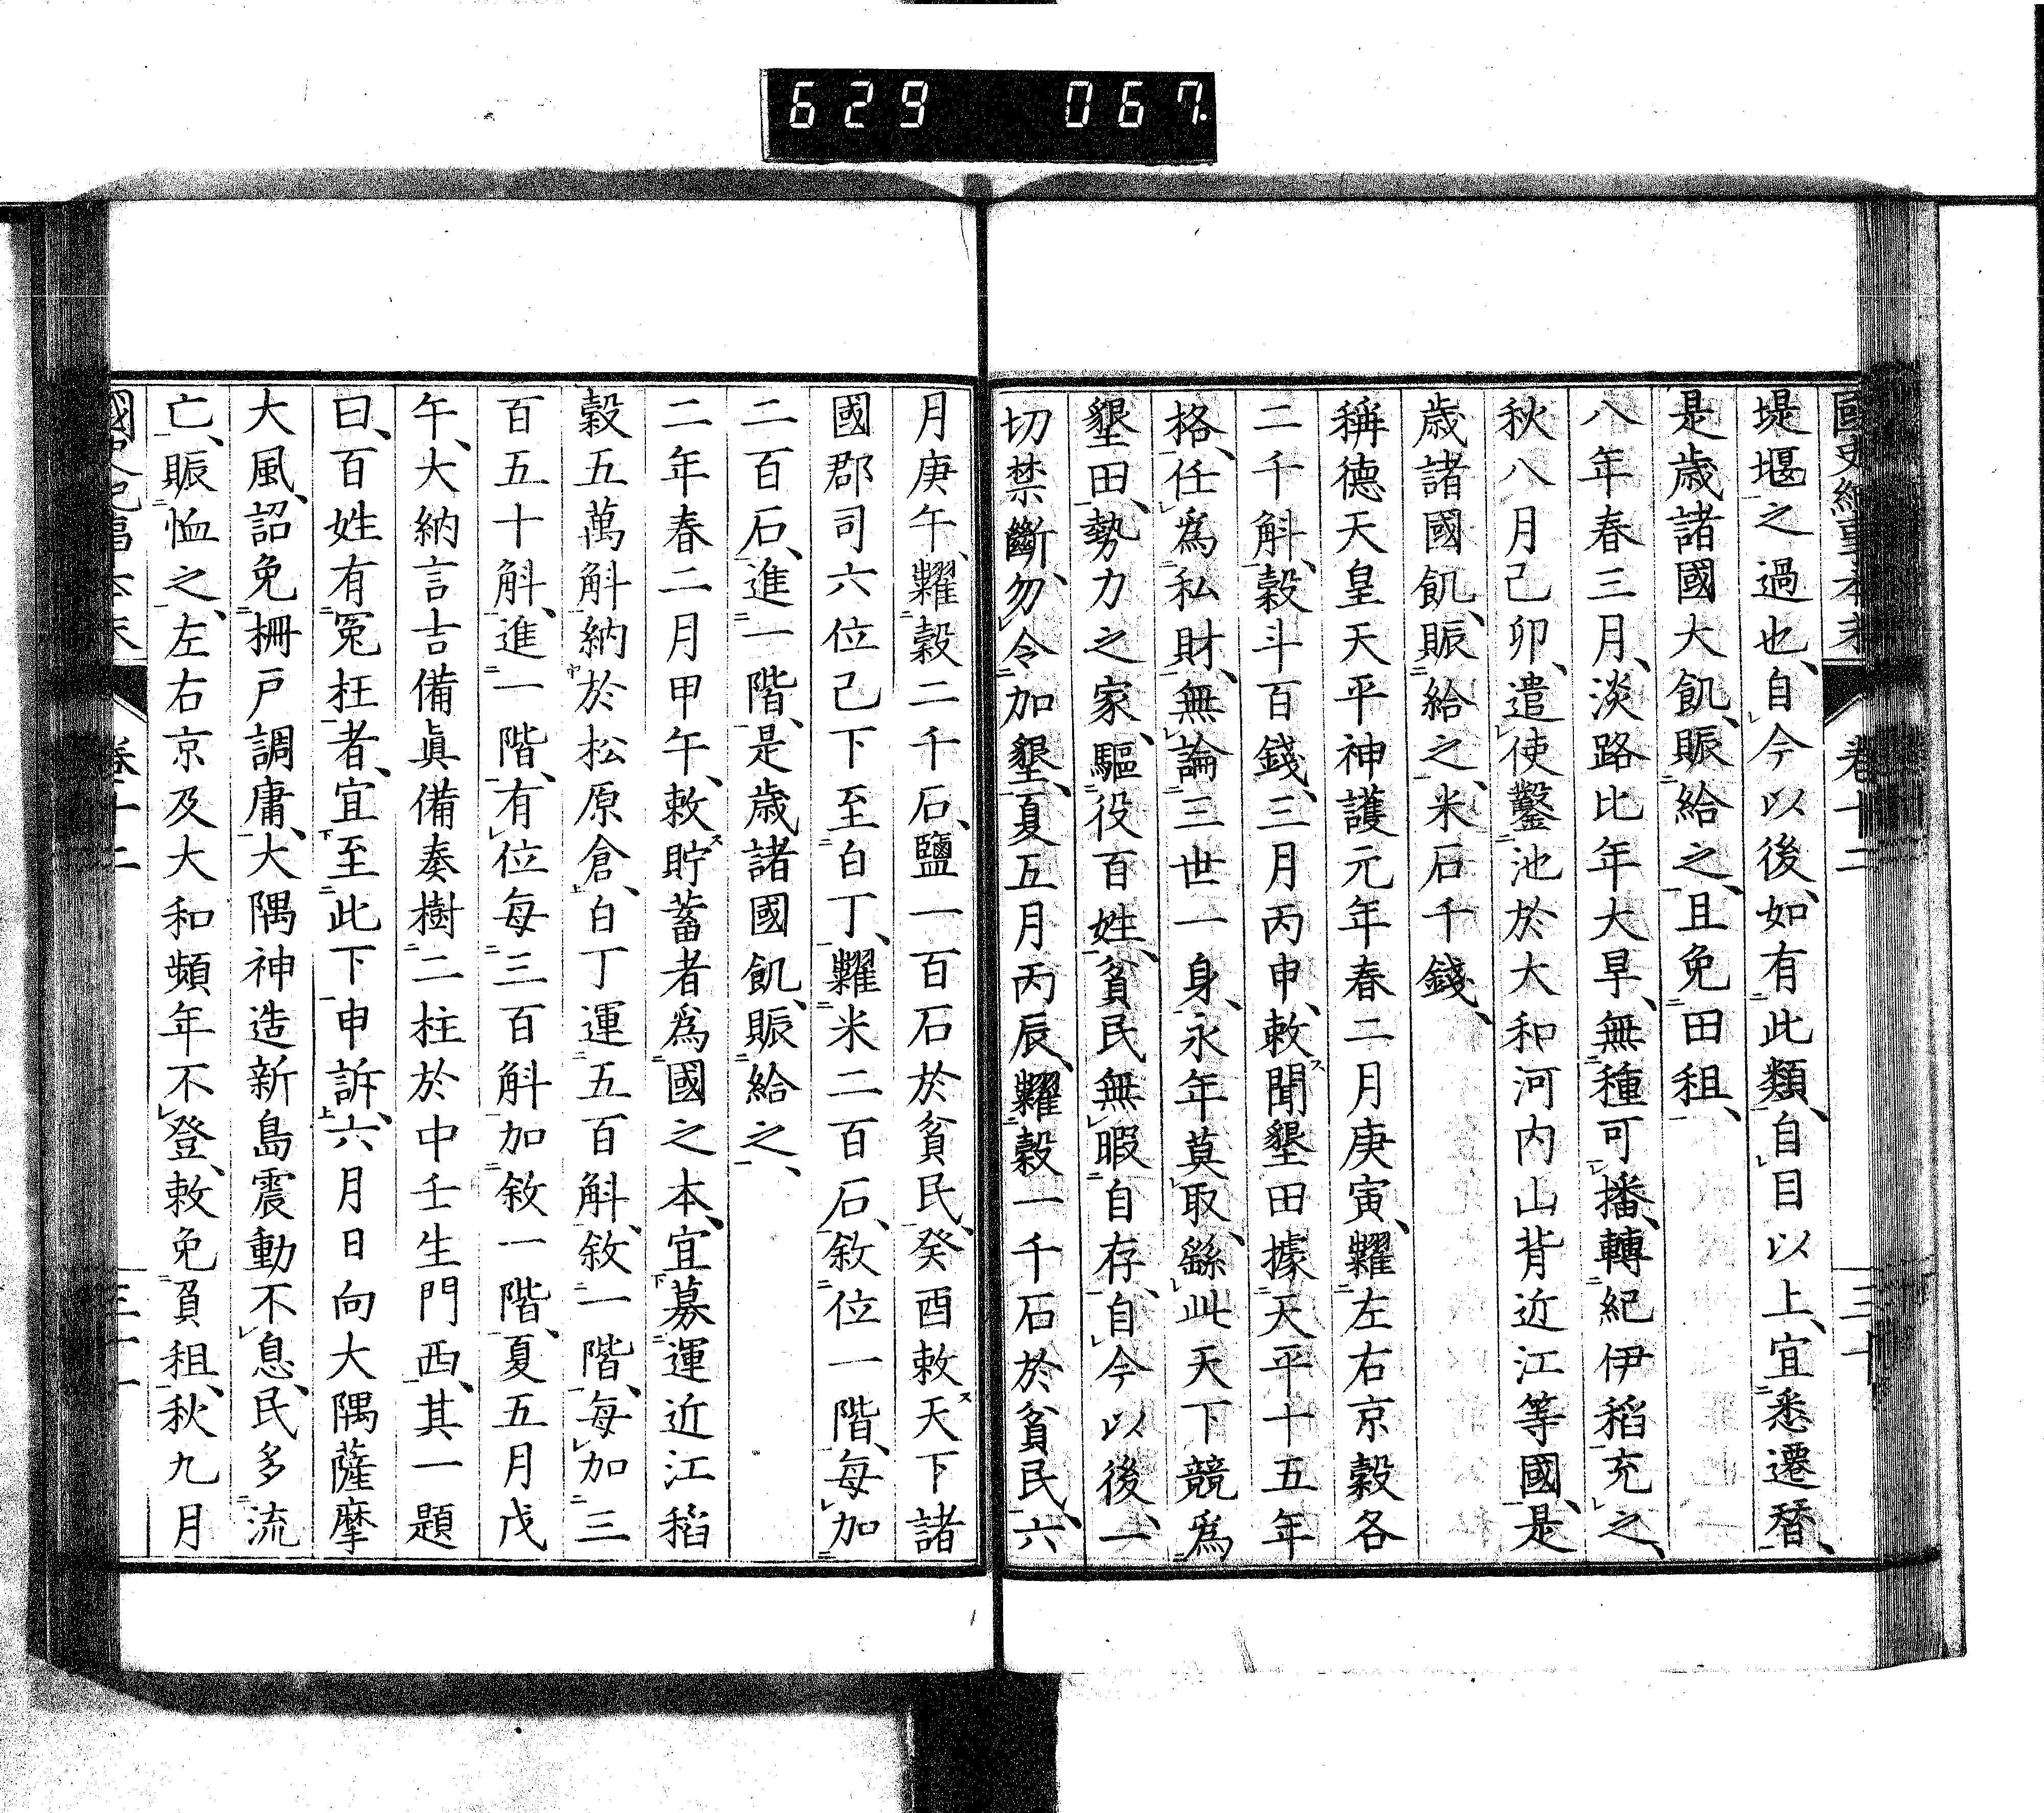 629 067.
國史紀事本末 卷十二 三十
堤堰之過也、自今以後、如有此類、自目以上、宜悉遷替、
是歲諸國大飢、賑給之、且免田租、
八年春三月、淡路比年大旱、無種可播、轉紀伊稻充之、
秋八月己卯、遣使鑿池於大和河内山背近江等國、是
歲諸國飢、賑給之、米石千錢、
稱德天皇天平神護元年春二月庚寅、糶左右京穀各
二千斛、穀斗百錢、三月丙申、敕聞墾田據天平十五年
格、任爲私財、無論三世一身、永年莫取、繇此天下競爲
墾田、勢力之家、驅役百姓、貧民無暇自存、自今以後、一
切禁斷、勿令加墾、夏五月丙辰、糶穀一千石於貧民、六
月庚午、糶穀二千石、鹽一百石於貧民、癸酉敕天下諸
國郡司六位己下至白丁、糶米二百石、敘位一階、每加
二百石、進一階、是歲諸國飢、賑給之、
二年春二月甲午、敕貯蓄者爲國之本、宜募運近江稻
穀五萬斛納於松原倉、白丁運五百斛、敘一階、每加三
百五十斛、進一階、有位每三百斛加敘一階、夏五月戊
午、大納言吉備眞備奏樹二柱於中壬生門西、其一題
曰、百姓有冤枉者、宜至此下申訴、六月日向大隅薩摩
大風、詔免柵戸調庸、大隅神造新島震動不息、民多流
亡、賑恤之、左右京及大和頻年不登、敕免負租、秋九月
國史紀事本末 卷十二 三十一